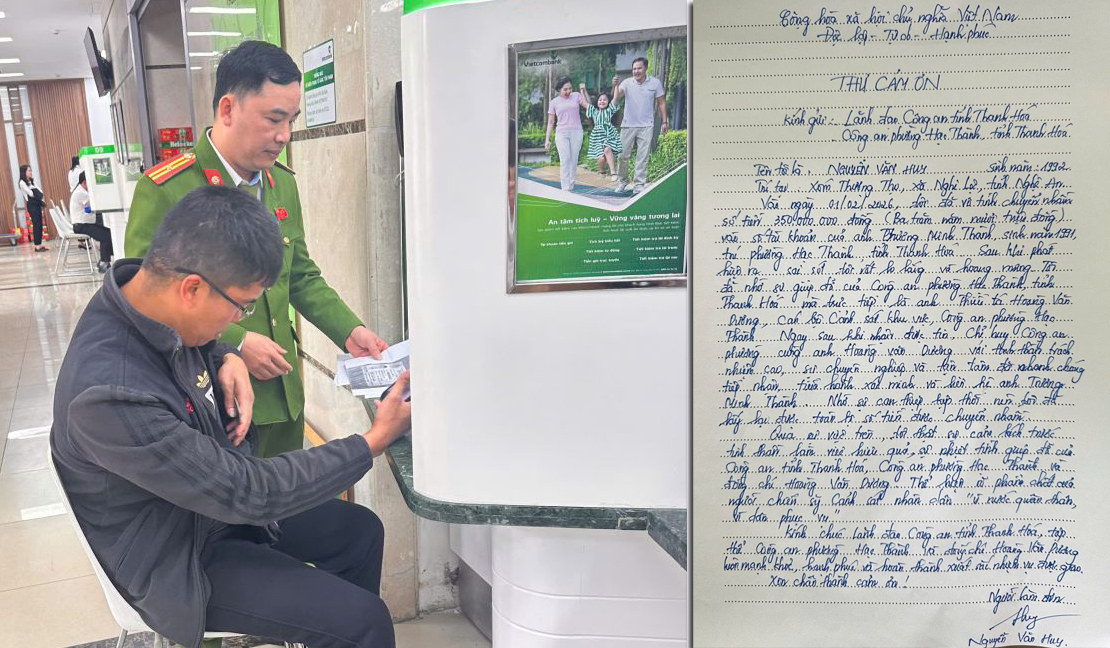 09
Vietcombank
An tâm tích luỹ - Vững vàng tương lai
Cộng hòa xã hội chủ nghĩa Việt Nam
Độc lập - Tự do - Hạnh phúc
THƯ CẢM ƠN
Kính gửi: Lãnh đạo Công an tỉnh Thanh Hoá
Công an phường Hạc Thành, tỉnh Thanh Hoá
Tên tôi là NGUYỄN VĂN HUY sinh năm 1992
Trú tại Xóm Thượng Thọ, xã Nghi Lộc, tỉnh Nghệ An.
Vào ngày 01/02/2026, tôi đã vô tình chuyển nhầm
số tiền 350.000.000 đồng (Ba trăm năm mươi triệu đồng)
vào số tài khoản của anh Phương Minh Thành, sinh năm 1991,
trú phường Hạc Thành, tỉnh Thanh Hóa. Sau khi phát
hiện ra sai sót tôi rất lo lắng và hoang mang. Tôi
đã nhờ sự giúp đỡ của Công an phường Hạc Thành, tỉnh
Thanh Hoá mà trực tiếp là anh Thiếu tá Hoàng Văn
Dương, Cán bộ Cảnh sát khu vực, Công an phường Hạc
Thành. Ngay sau khi nhận được tin, Chỉ huy Công an
phường cùng anh Hoàng Văn Dương với tinh thần trách
nhiệm cao, sự chuyên nghiệp và tận tâm đã nhanh chóng
tiếp nhận, tiến hành xác minh và liên hệ anh
Minh Thành. Nhờ sự can thiệp kịp thời nên tôi đã
được toàn bộ số tiền được chuyển nhầm.
Qua sự việc trên, tôi thật sự cảm kích trước
tinh thần làm việc hiệu quả, sự nhiệt tình giúp đỡ của
Công an tỉnh Thanh Hoá, Công an phường Hạc Thành và
đồng chí Hoàng Văn Dương. Thể hiện rõ phẩm chất của
người chiến sỹ Cảnh sát nhân dân "vì nước quên thân,
vì dân phục vụ"
Kính chúc Lãnh đạo Công an tỉnh Thanh Hoá, tập
thể Công an phường Hạc Thành và đồng chí Hoàng Văn Dương
luôn mạnh khoẻ, hạnh phúc và hoàn thành xuất sắc nhiệm vụ được giao.
Xin chân thành cảm ơn!
Người làm đơn
Huy
Nguyễn Văn Huy.